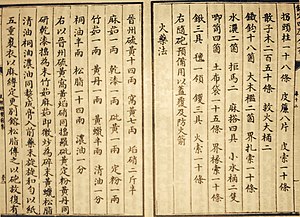 拐頭柱一十八條 皮簾八片 皮索一十條
散子木二百五十條 救火大桶二
鐵鈎十八箇 大木檑二箇 界扎索一十條
水濺二箇 拒馬二 麻搭四具 小水桶二隻
唧筒四箇 土布袋一十五條 界椽索一十條
鍬三具 氈三領 钁三具 火索一十條
右隨砲預備用以蓋覆及防火箭
火藥法
晉州硫黄十四兩 窩黄七兩 焰硝二斤半
麻茹一兩 乾漆一兩 砒黄一兩 定粉一兩
竹茹一兩 黄丹一兩 黄蠟半兩 清油一分
桐油半兩 松脂一十四兩 濃油一分
右以晉州硫黄窩黄焰硝同搗羅砒黄定粉黄丹同
研乾漆搗爲末竹茹麻茹即微炒爲碎末黄蠟松脂
清油桐油濃油同熬成膏入前藥末旋旋和勻以紙
五重裹衣以麻縛定更別鎔松脂傅之以砲放復有